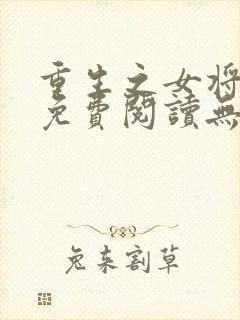 重生之女將
免費閱讀無
兔來割草